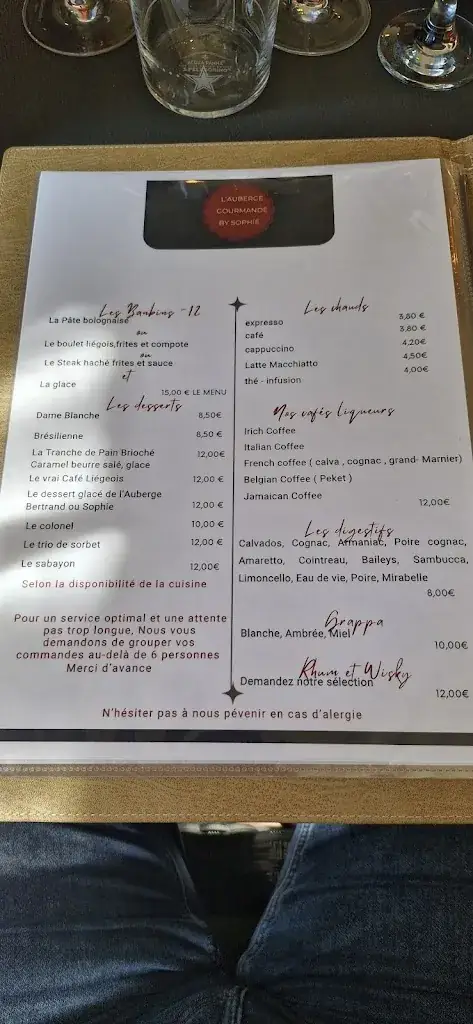 L'AUBERGE
GOURMANDE
BY SOPHIE
Les Bambins -12
La Pâte bolognaise
ou
Le boulet liégois,frites et compote
ou
Le Steak haché frites et sauce
et
La glace
15,00 € LE MENU
Les desserts
Dame Blanche 8,50€
Brésilienne 8,50 €
La Tranche de Pain Brioché 12,00€
Caramel beurre salé, glace
Le vrai Café Liégeois 12,00 €
Le dessert glacé de l'Auberge
Bertrand ou Sophie 12,00 €
Le colonel 10,00 €
Le trio de sorbet 12,00 €
Le sabayon 12,00€
Selon la disponibilité de la cuisine
Pour un service optimal et une attente
pas trop longue, Nous vous
demandons de grouper vos
commandes au-delà de 6 personnes
Merci d'avance
Les chauds
expresso 3,80 €
café 3,80 €
cappuccino 4,20€
Latte Macchiatto 4,50€
thé - infusion 4,00€
Nos cafés liqueurs
Irich Coffee
Italian Coffee
French coffee ( calva , cognac , grand- Marnier)
Belgian Coffee ( Peket )
Jamaican Coffee
12,00€
Les digestifs
Calvados, Cognac, Armaniac, Poire cognac,
Amaretto, Cointreau, Baileys, Sambucca,
Limoncello, Eau de vie, Poire, Mirabelle
8,00€
Grappa
Blanche, Ambrée, Miel
10,00€
Rhum et Wisky
Demandez notre sélection
12,00€
N'hésiter pas à nous pévenir en cas d'alergie